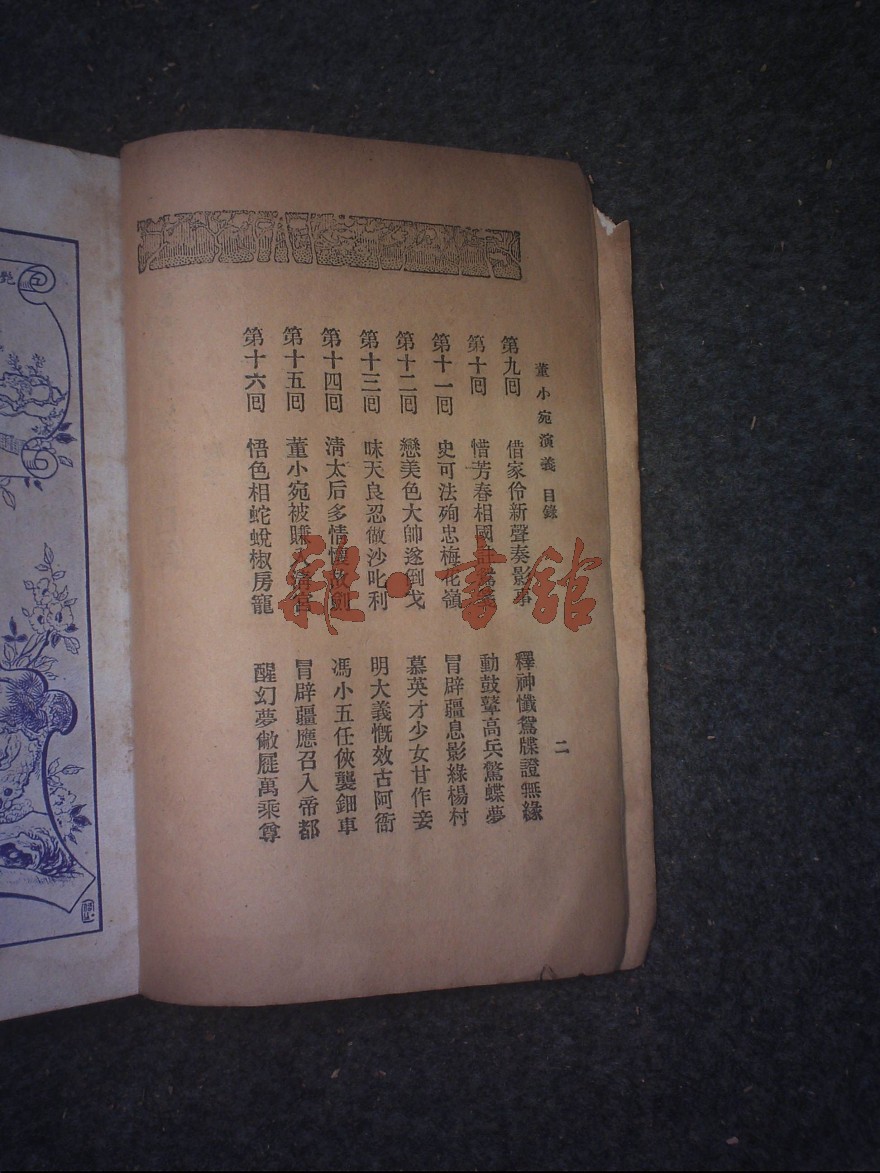 董小宛演義 目錄 二
第九回 借家伶新聲奏影事 釋神懺鴛牒證無緣
第十回 惜芳春相國註鴛 動鼓鼙高兵驚蝶夢
第十一回 史可法殉忠梅花嶺 冒辟疆息影綠楊村
第十二回 戀美色大帥遂倒戈 慕英才少女甘作妾
第十三回 昧天良忍做沙叱利 明大義慨效古阿衙
第十四回 清太后多情懷故劍 馮小五任俠襲鈿車
第十五回 董小宛被賺入清宮 冒辟疆應召入帝都
第十六回 悟色相蛇蛻椒房寵 醒幻夢敝屣萬乘尊
雜·書館